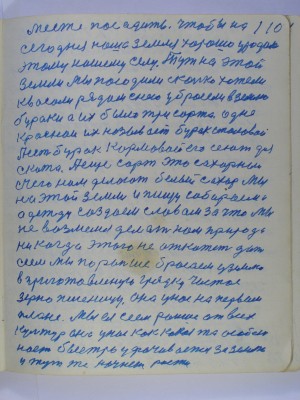 месте посадить. чтобы на 110
сегодня наша земля хорошо уродила
этому нашему селу. Тут на этой
земли мы посадили сколко хотели
рядом с нею у бросаем в землю
бураки а их было три сорта. одне
красной их называют бурак столовой
Есть бурак Кормовай его сеют для
скота. А еще сорт это сахарной
с чего нам делают белый сахар мы
на этой земли и пищу собираем и
одежду создаем словом за что мы
не возмемся делат нам природа
никогда этого не откажет дат
сеем мы пораньше бросаем у землю
в приготовленную грядку чистое
зерно пшеницу, она у нас на первом
плане. Мы её сеем раньше от всех
культур она у нас как
нает быстро у фачивается за землю
и тут же начнет рости